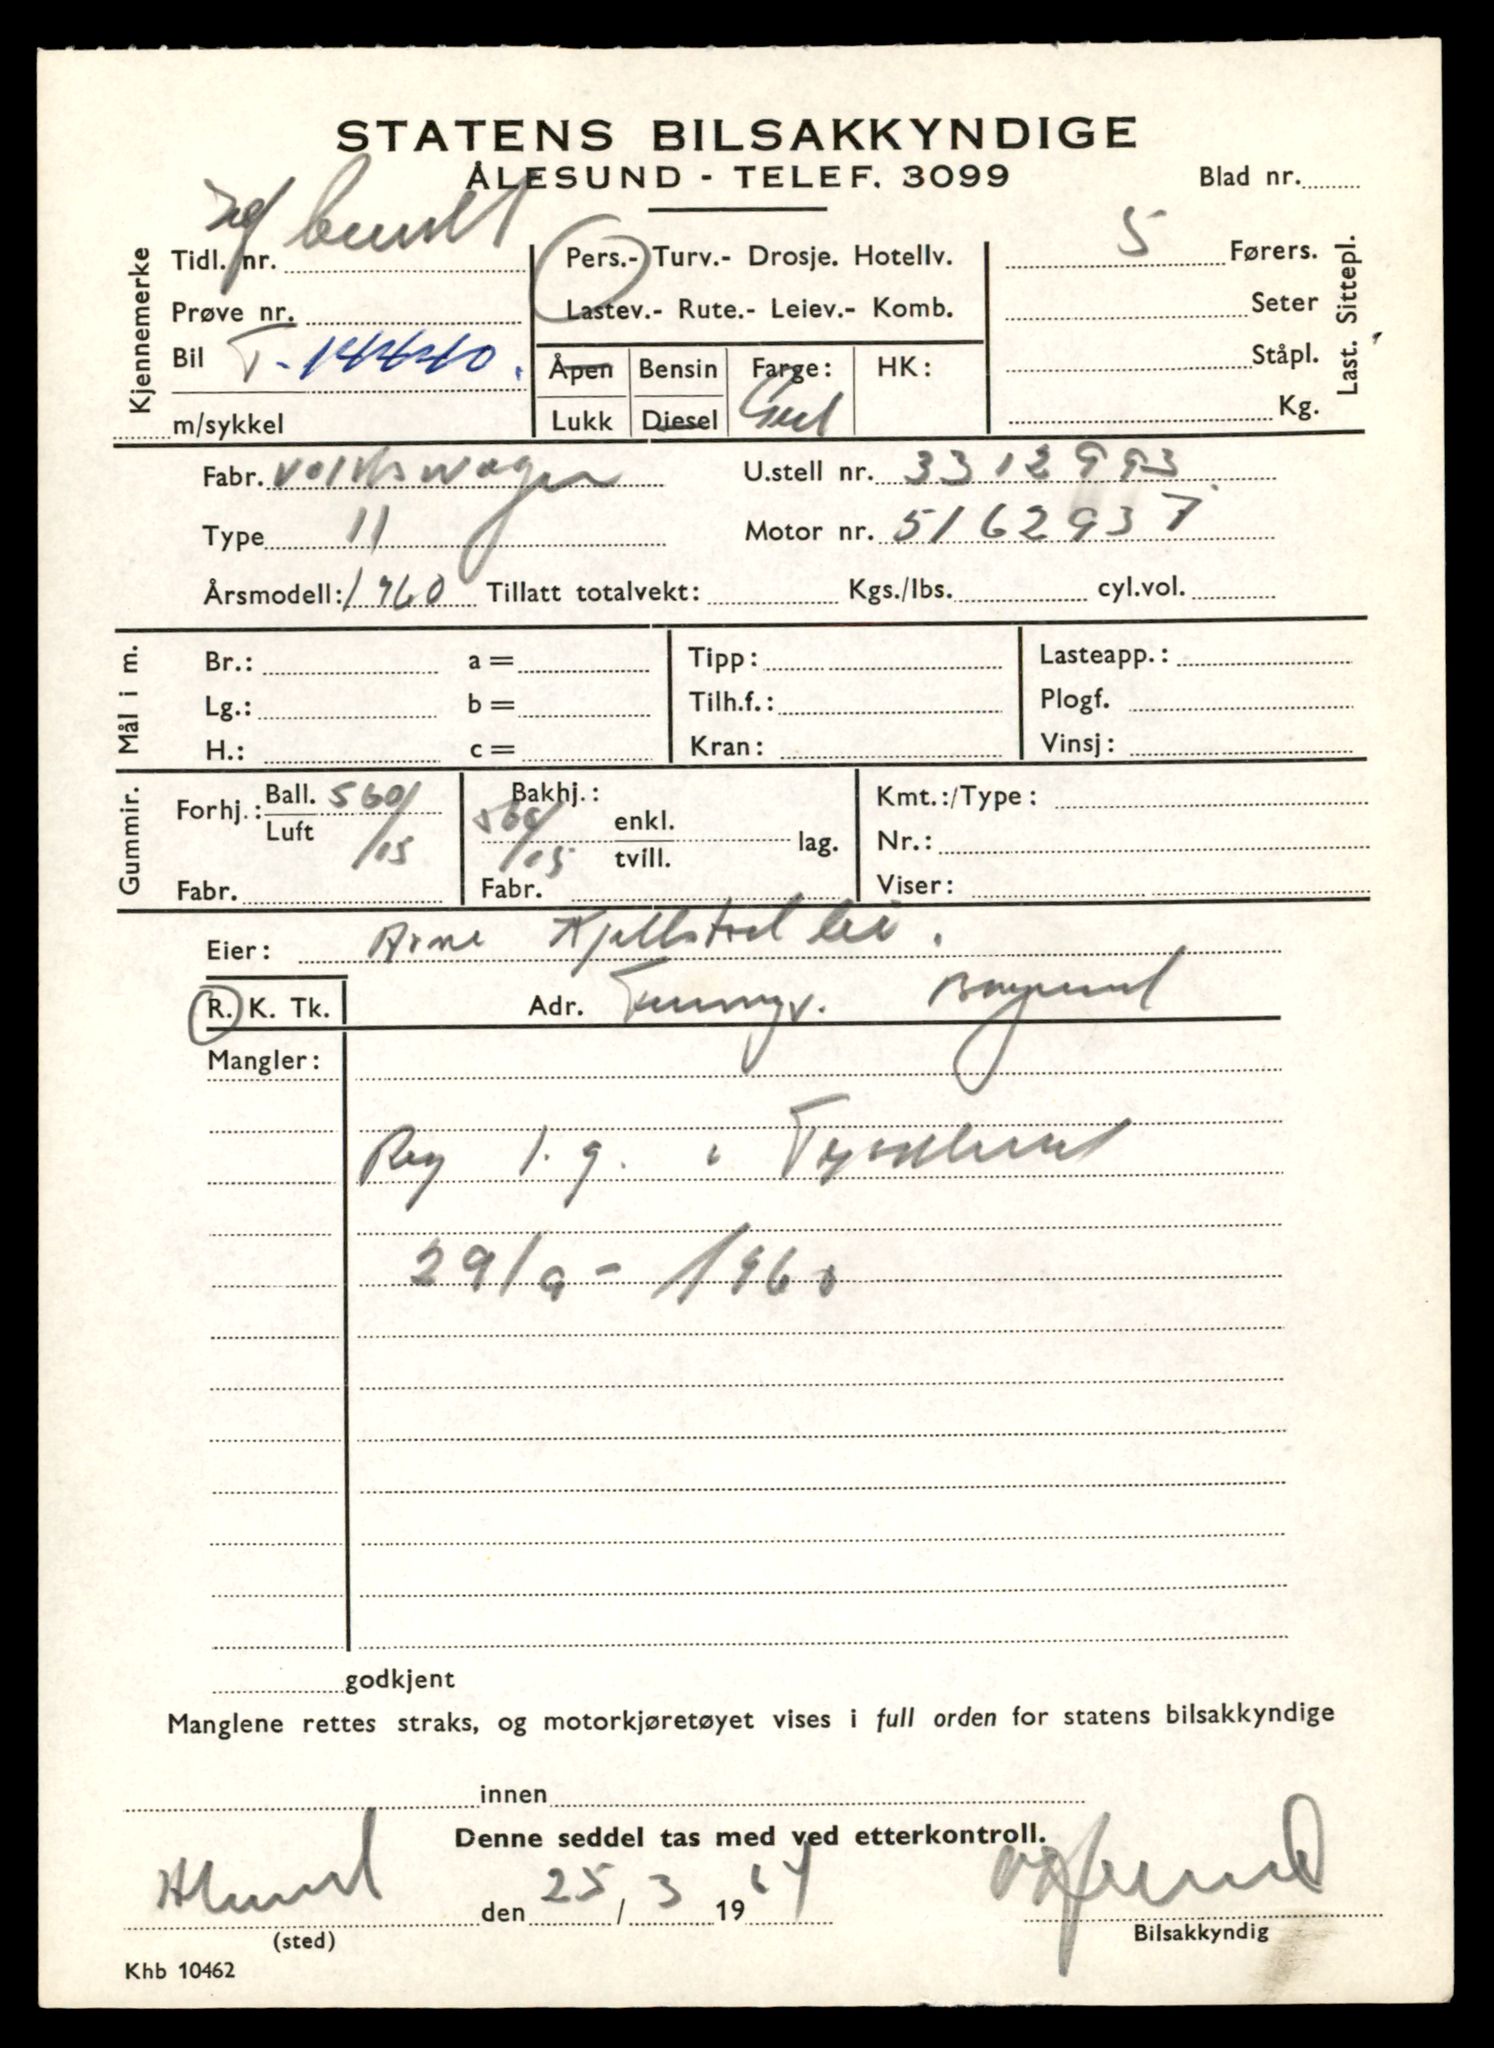 STATENS BILSAKKYNDIGE
ÅLESUND - TELEF. 3099
Blad nr.
Kjennemerke
Tidl. nr.
Prøve nr.
Bil T-14440.
m/sykkel
Pers.- Turv.- Drosje. Hotellv.
Lastev.- Rute.- Leiev.- Komb.
Åpen Bensin Farge: HK:
Lukk Diesel
5 Førers.
Seter
Ståpl.
Kg.
Last. Sittepl.
Fabr. Volkswagen U.stell nr. 3312993
Type 11 Motor nr. 5162937
Årsmodell: 1960 Tillatt totalvekt: Kgs./lbs. cyl.vol.
Mål i m.
Br.: a = Tipp: Lasteapp.:
Lg.: b = Tilh.f.: Plogf.
H.: c = Kran: Vinsj:
Gummir.
Forhj.: Ball. 560/
Luft /15
Fabr.
Bakhj.:
560/ enkl.
/15 tvill. lag.
Fabr.
Kmt.:/Type:
Nr.:
Viser:
Eier: Arne Kjellstadli.
R. K. Tk. Adr.
Mangler:
Reg 1. g. i Tyskland
29/9 - 1960
godkjent
Manglene rettes straks, og motorkjøretøyet vises i full orden for statens bilsakkyndige
innen
Denne seddel tas med ved etterkontroll.
Ålesund den 25/3 1964
(sted) Bilsakkyndig
Khb 10462